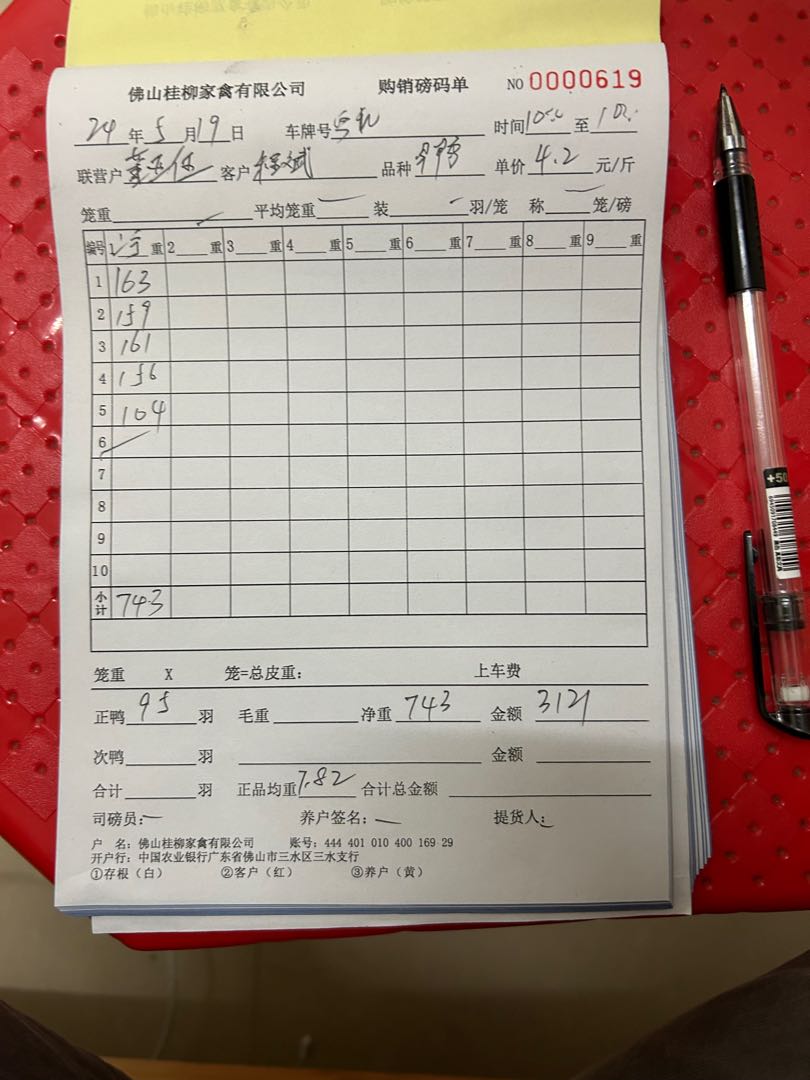 佛山桂柳家禽有限公司 购销磅码单 NO 0000619
24 年 5 月 19 日 车牌号 时间 10 至 10
联营户 客户 品种 单价 4.2 元/斤
笼重 平均笼重 装 羽/笼 称 笼/磅
编号 1 重 2 重 3 重 4 重 5 重 6 重 7 重 8 重 9 重
1 163
2 159
3 161
4 156
5 104
6
7
8
9
10
小计 743
笼重 X 笼=总皮重: 上车费
正鸭 95 羽 毛重 净重 743 金额 3121
次鸭 羽 金额
合计 羽 正品均重 7.82 合计总金额
司磅员: 养户签名: 提货人:
户 名: 佛山桂柳家禽有限公司 账号: 444 401 010 400 169 29
开户行: 中国农业银行广东省佛山市三水区三水支行
①存根（白） ②客户（红） ③养户（黄）
+50